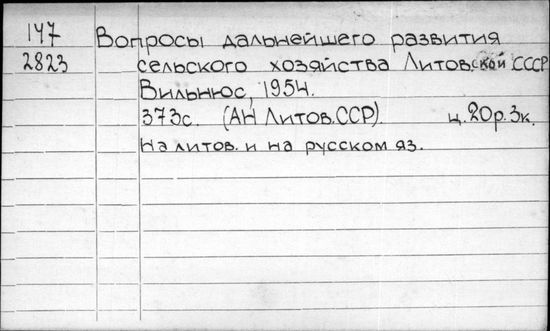 147 Вопросы дальнейшего развития
2823 сельского хозяйства Литовской СССР
Вильнюс, 1954.
373с. (АН Литов.ССР). ц.20р.3к.
На литов. и на русском яз.